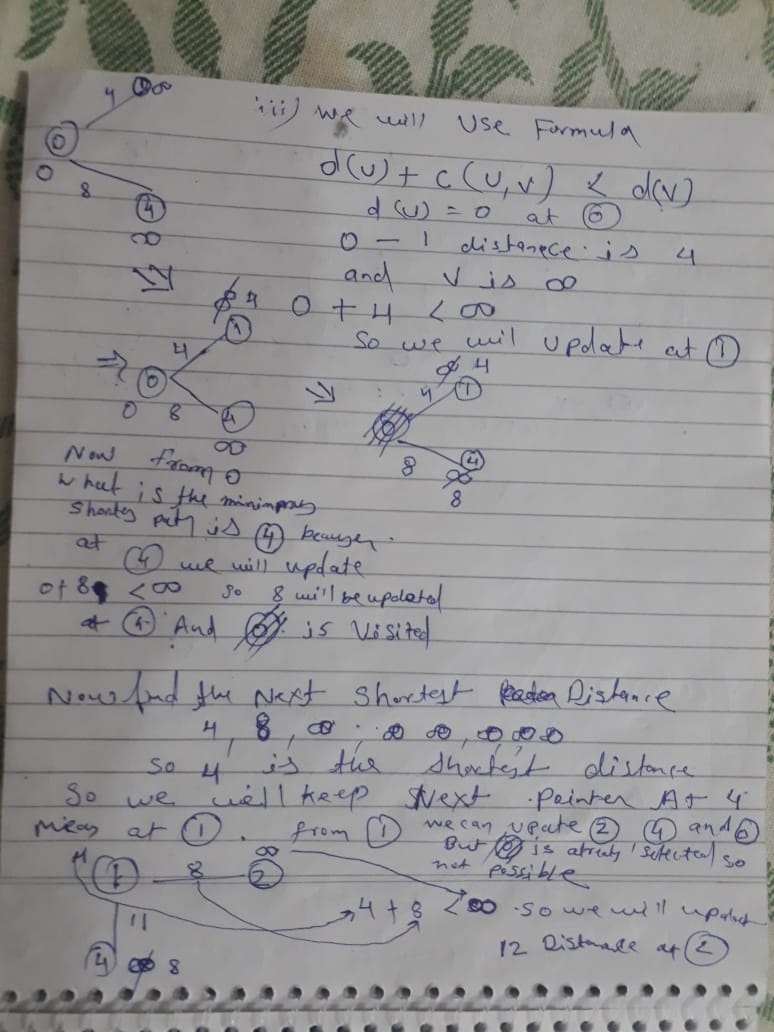 iii) we will use Formula
4 1 ∞
0
0
8
4
∞
d(u) + c(u,v) < d(v)
d(u) = 0 at 0
0 - 1 distanece is 4
and v is ∞
0 + 4 < ∞
so we will update at 1
4
4 1
0
0 8 4
∞
4
4 1
0
8 4
∞
8
Now from 0
what is the
shortes path is 4
at
4 we will update
0+8 < ∞ so 8 will be updated
at 4 And 0 is Visited
Now find the Next Shortest Distance
4, 8, ∞, ∞ ∞, ∞ ∞ ∞
so 4 is the shortest distance
So we will keep Next pointer At 4
means at 1. from 1 we can upate 2 4 and 0
But 0 is already selected so
not possible
4 1 8 2 ∞
11
4 ∞ 8
4 + 8 < ∞ so we will update
12 Distance at 2